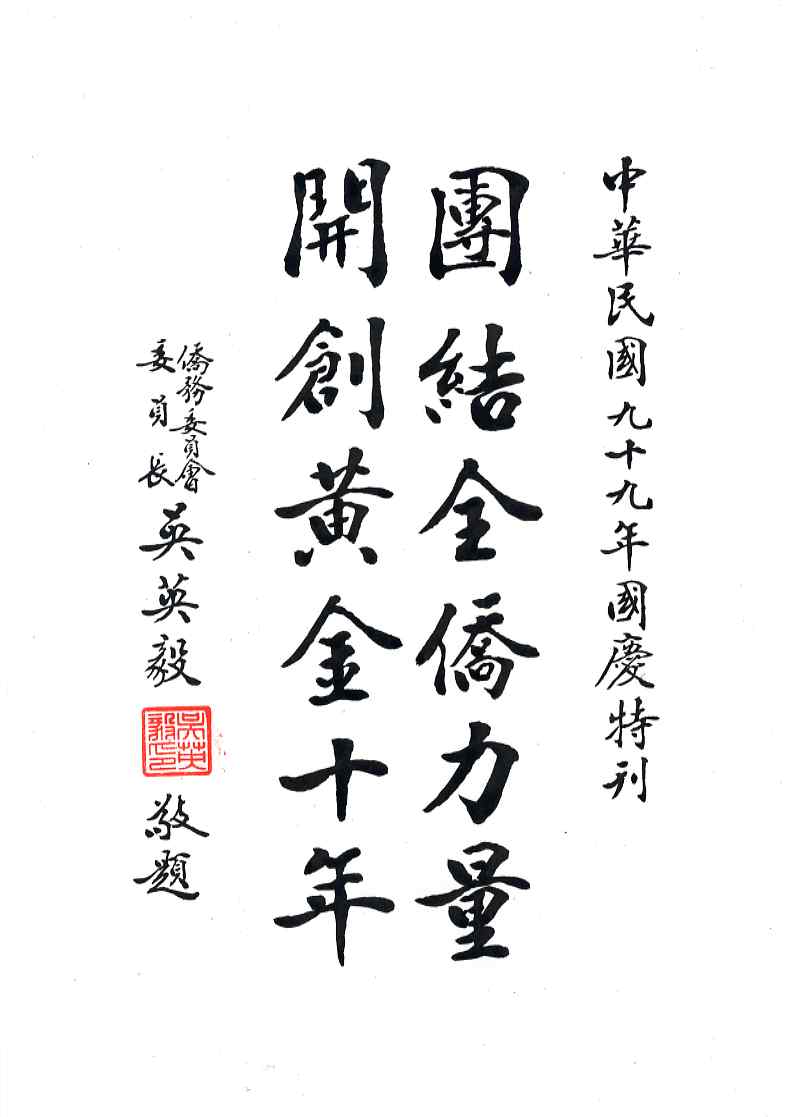 中華民國九十九年國慶特刊
團結全僑力量
開創黃金十年
僑務委員會
委員長
吳英毅
吳英毅印
敬題